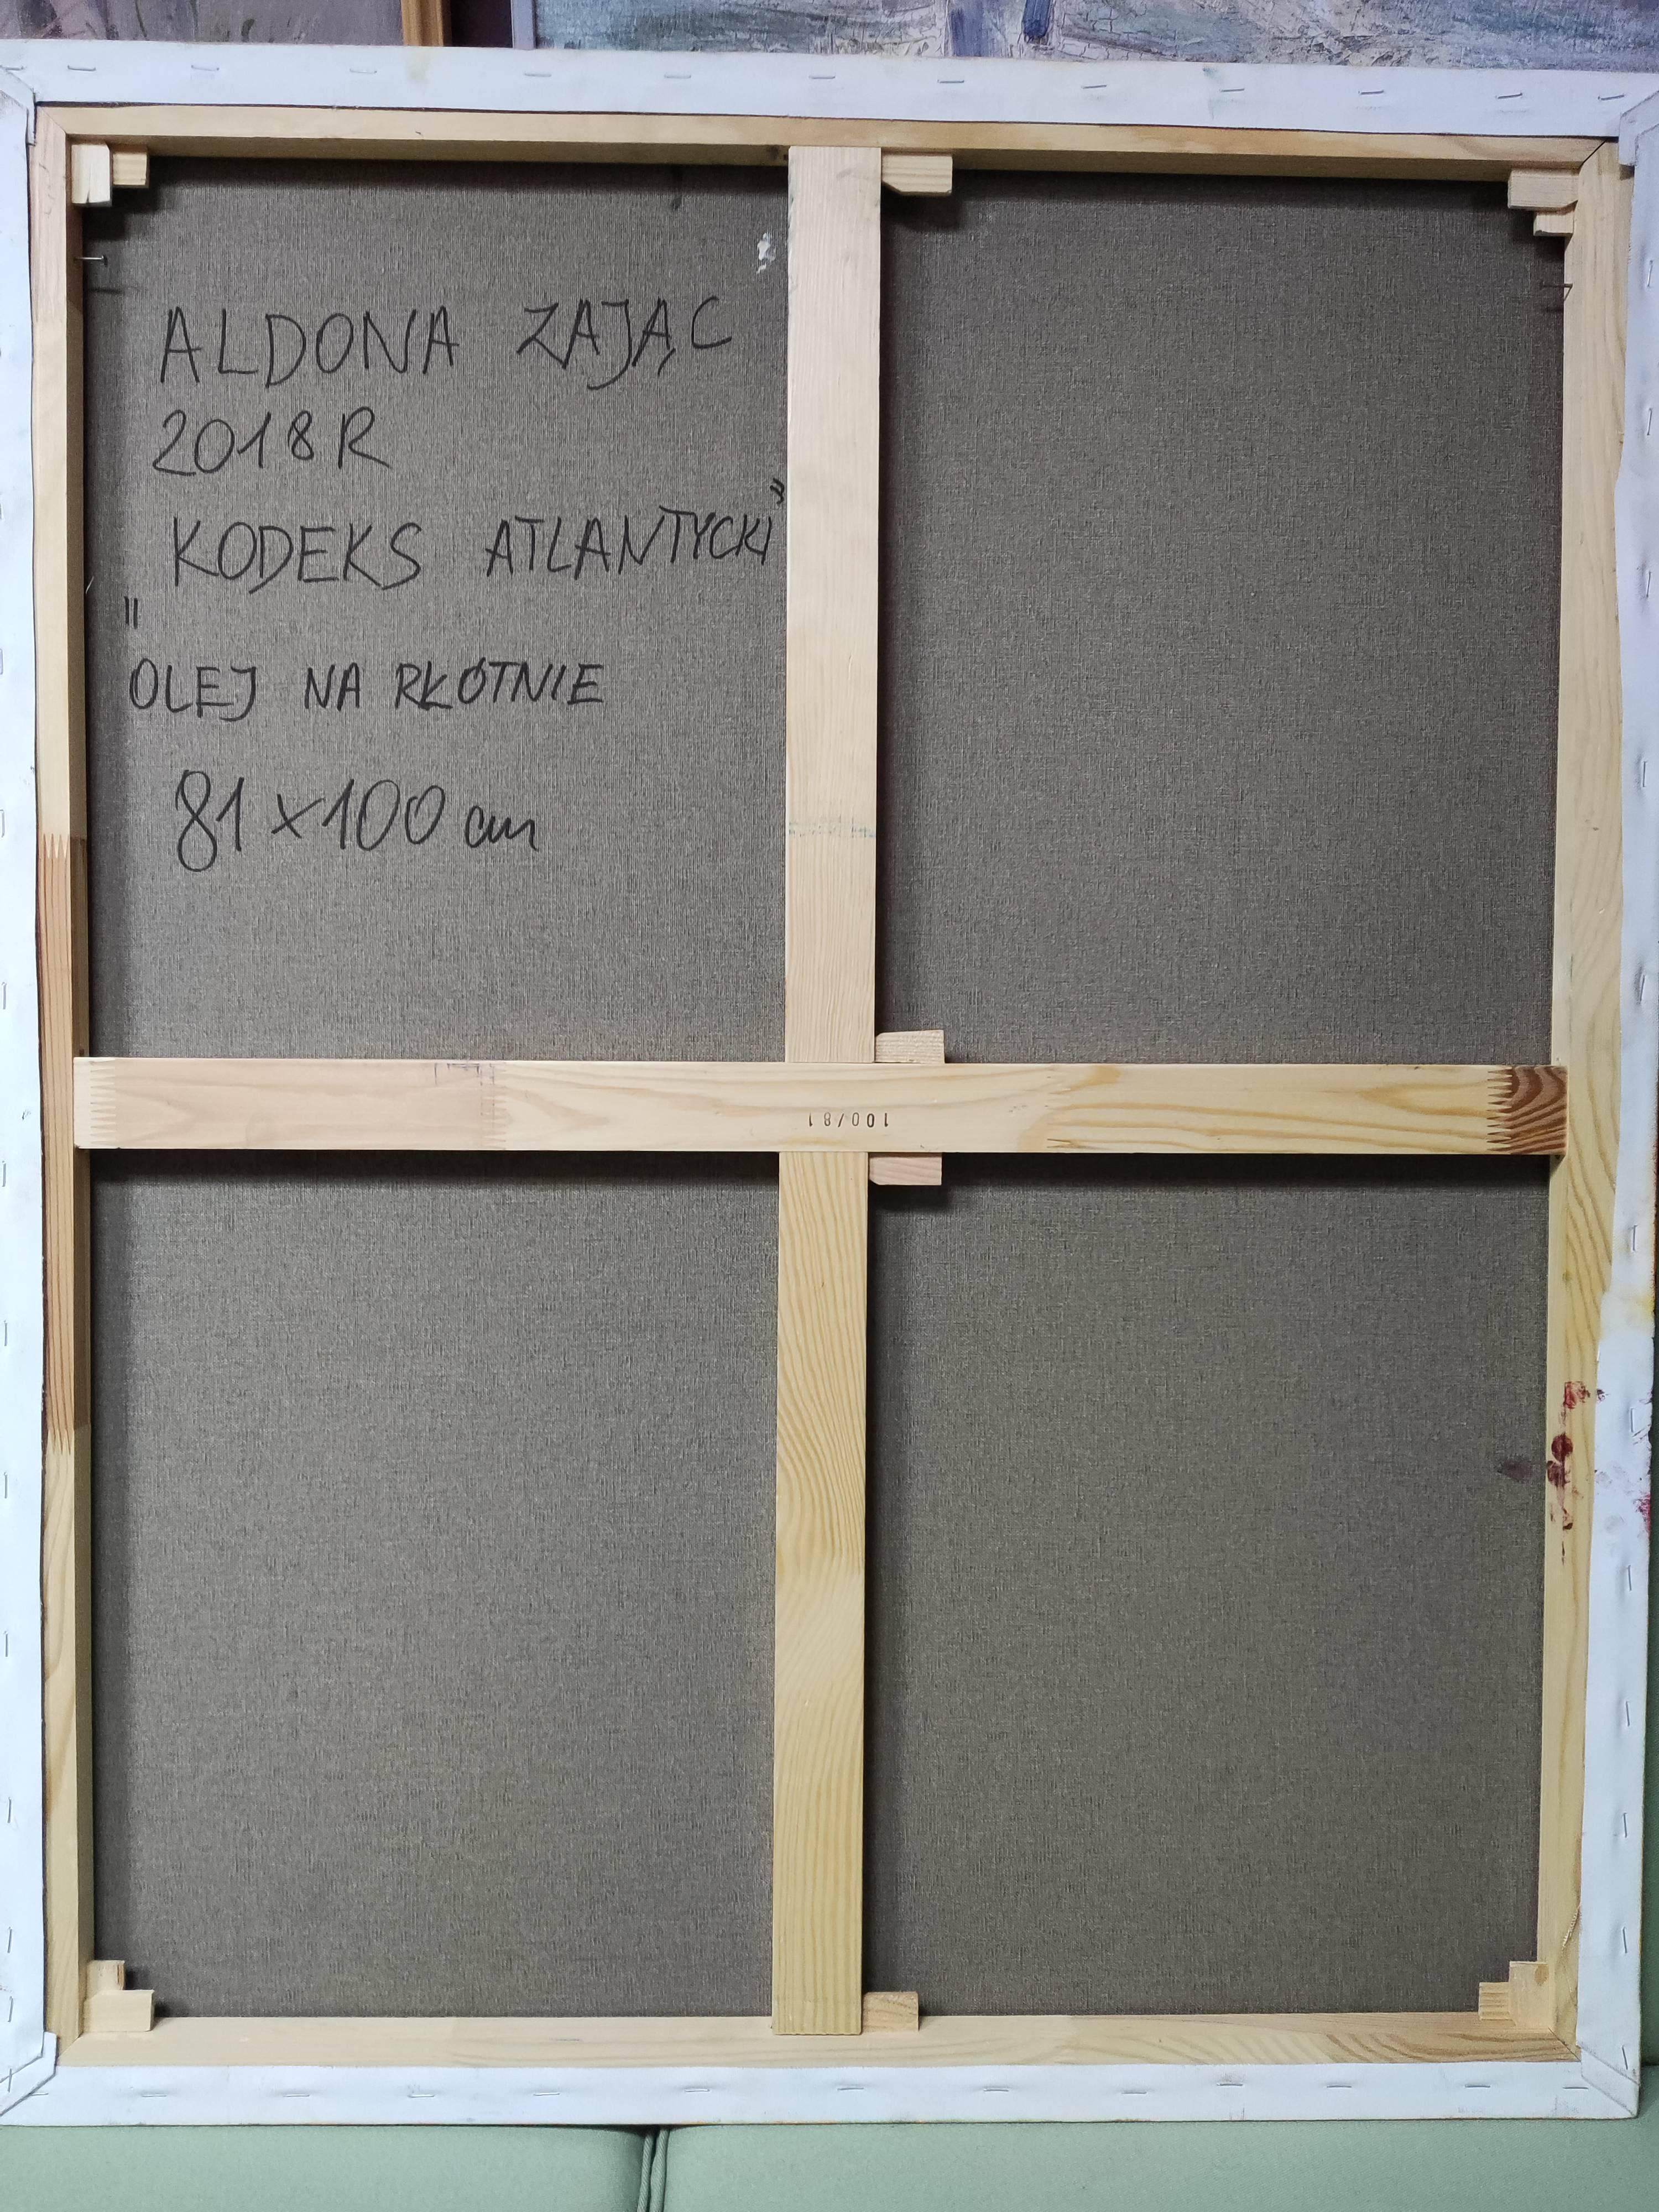 ALDONA ZAJĄC
2018R
"KODEKS ATLANTYCKI"
OLEJ NA PŁÓTNIE
81 x 100 cm
100/81